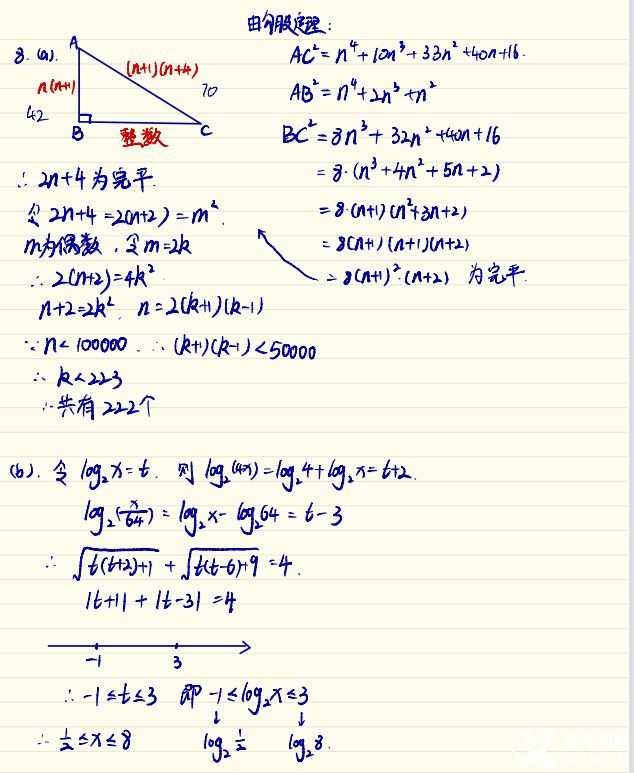 由勾股定理:
8. (a).
A
n(n+1)
42
B
整数
C
(n+1)(n+4)
70
AC² = n⁴+10n³+33n²+40n+16.
AB² = n⁴+2n³+n²
BC² = 8n³+32n²+40n+16
= 8·(n³+4n²+5n+2)
= 8·(n+1)(n²+3n+2)
= 8(n+1)(n+1)(n+2)
= 8(n+1)²·(n+2) 为完平.
∴ 2n+4为完平.
令 2n+4=2(n+2)=m².
m为偶数, 令m=2k
∴ 2(n+2)=4k²
n+2=2k², n=2(k+1)(k-1)
∵ n<100000. ∴ (k+1)(k-1)<50000
∴ k<223
∴共有222个
(b). 令 log₂x=t. 则 log₂(4x)=log₂4+log₂x=t+2.
log₂(x/64) = log₂x-log₂64 = t-3
∴ √(t(t+2)+1) + √(t(t-6)+9) =4.
|t+1| + |t-3| =4
-1 3
∴ -1≤t≤3 即 -1≤log₂x≤3
∴ ½≤x≤8 log₂½ log₂8.